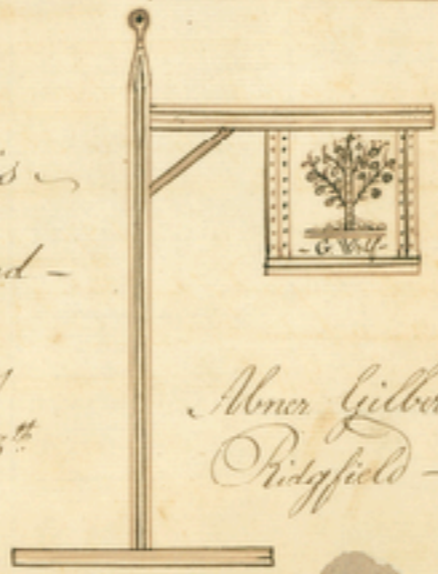 s
d —
th
- G. Wolf -
Abner Gilber
Ridgfield —